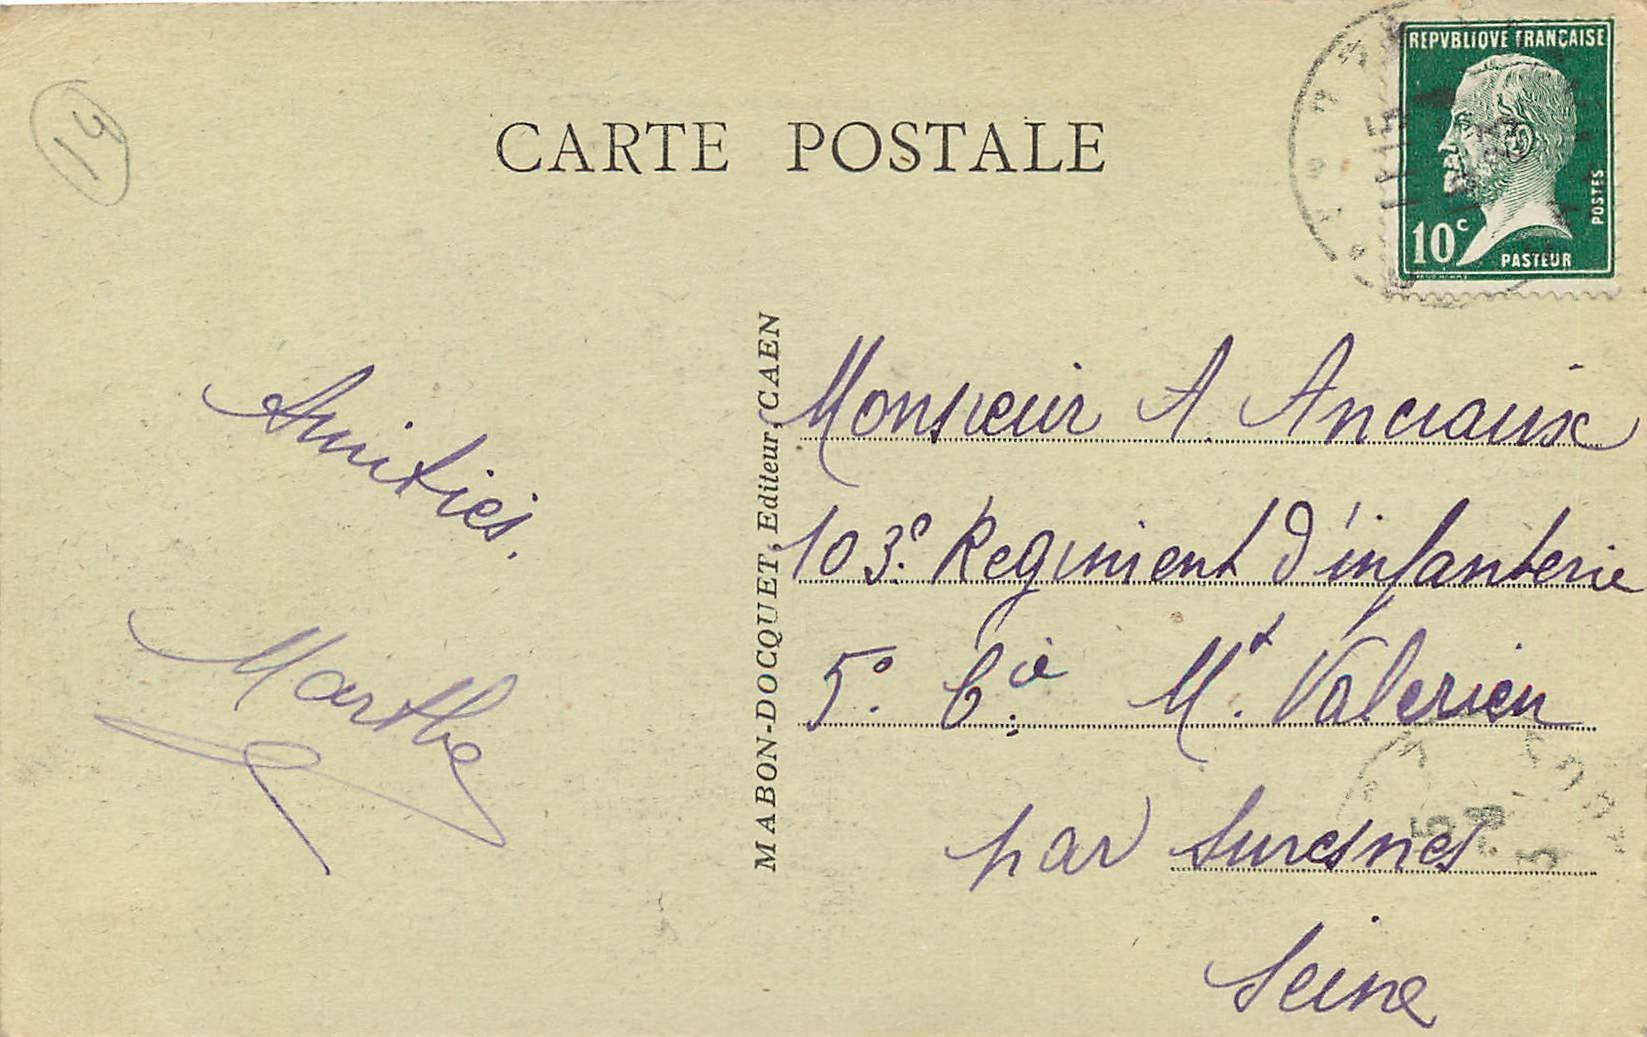 19
CARTE POSTALE
REPVBLIQVE FRANÇAISE
POSTES
10c
PASTEUR
Amitiés.
Marthe
MABON-DOCQUET, Editeur, CAEN
Monsieur A. Anciaux
103e Regiment d'infanterie
5e Cie Mt Valerien
par Suresnes
Seine